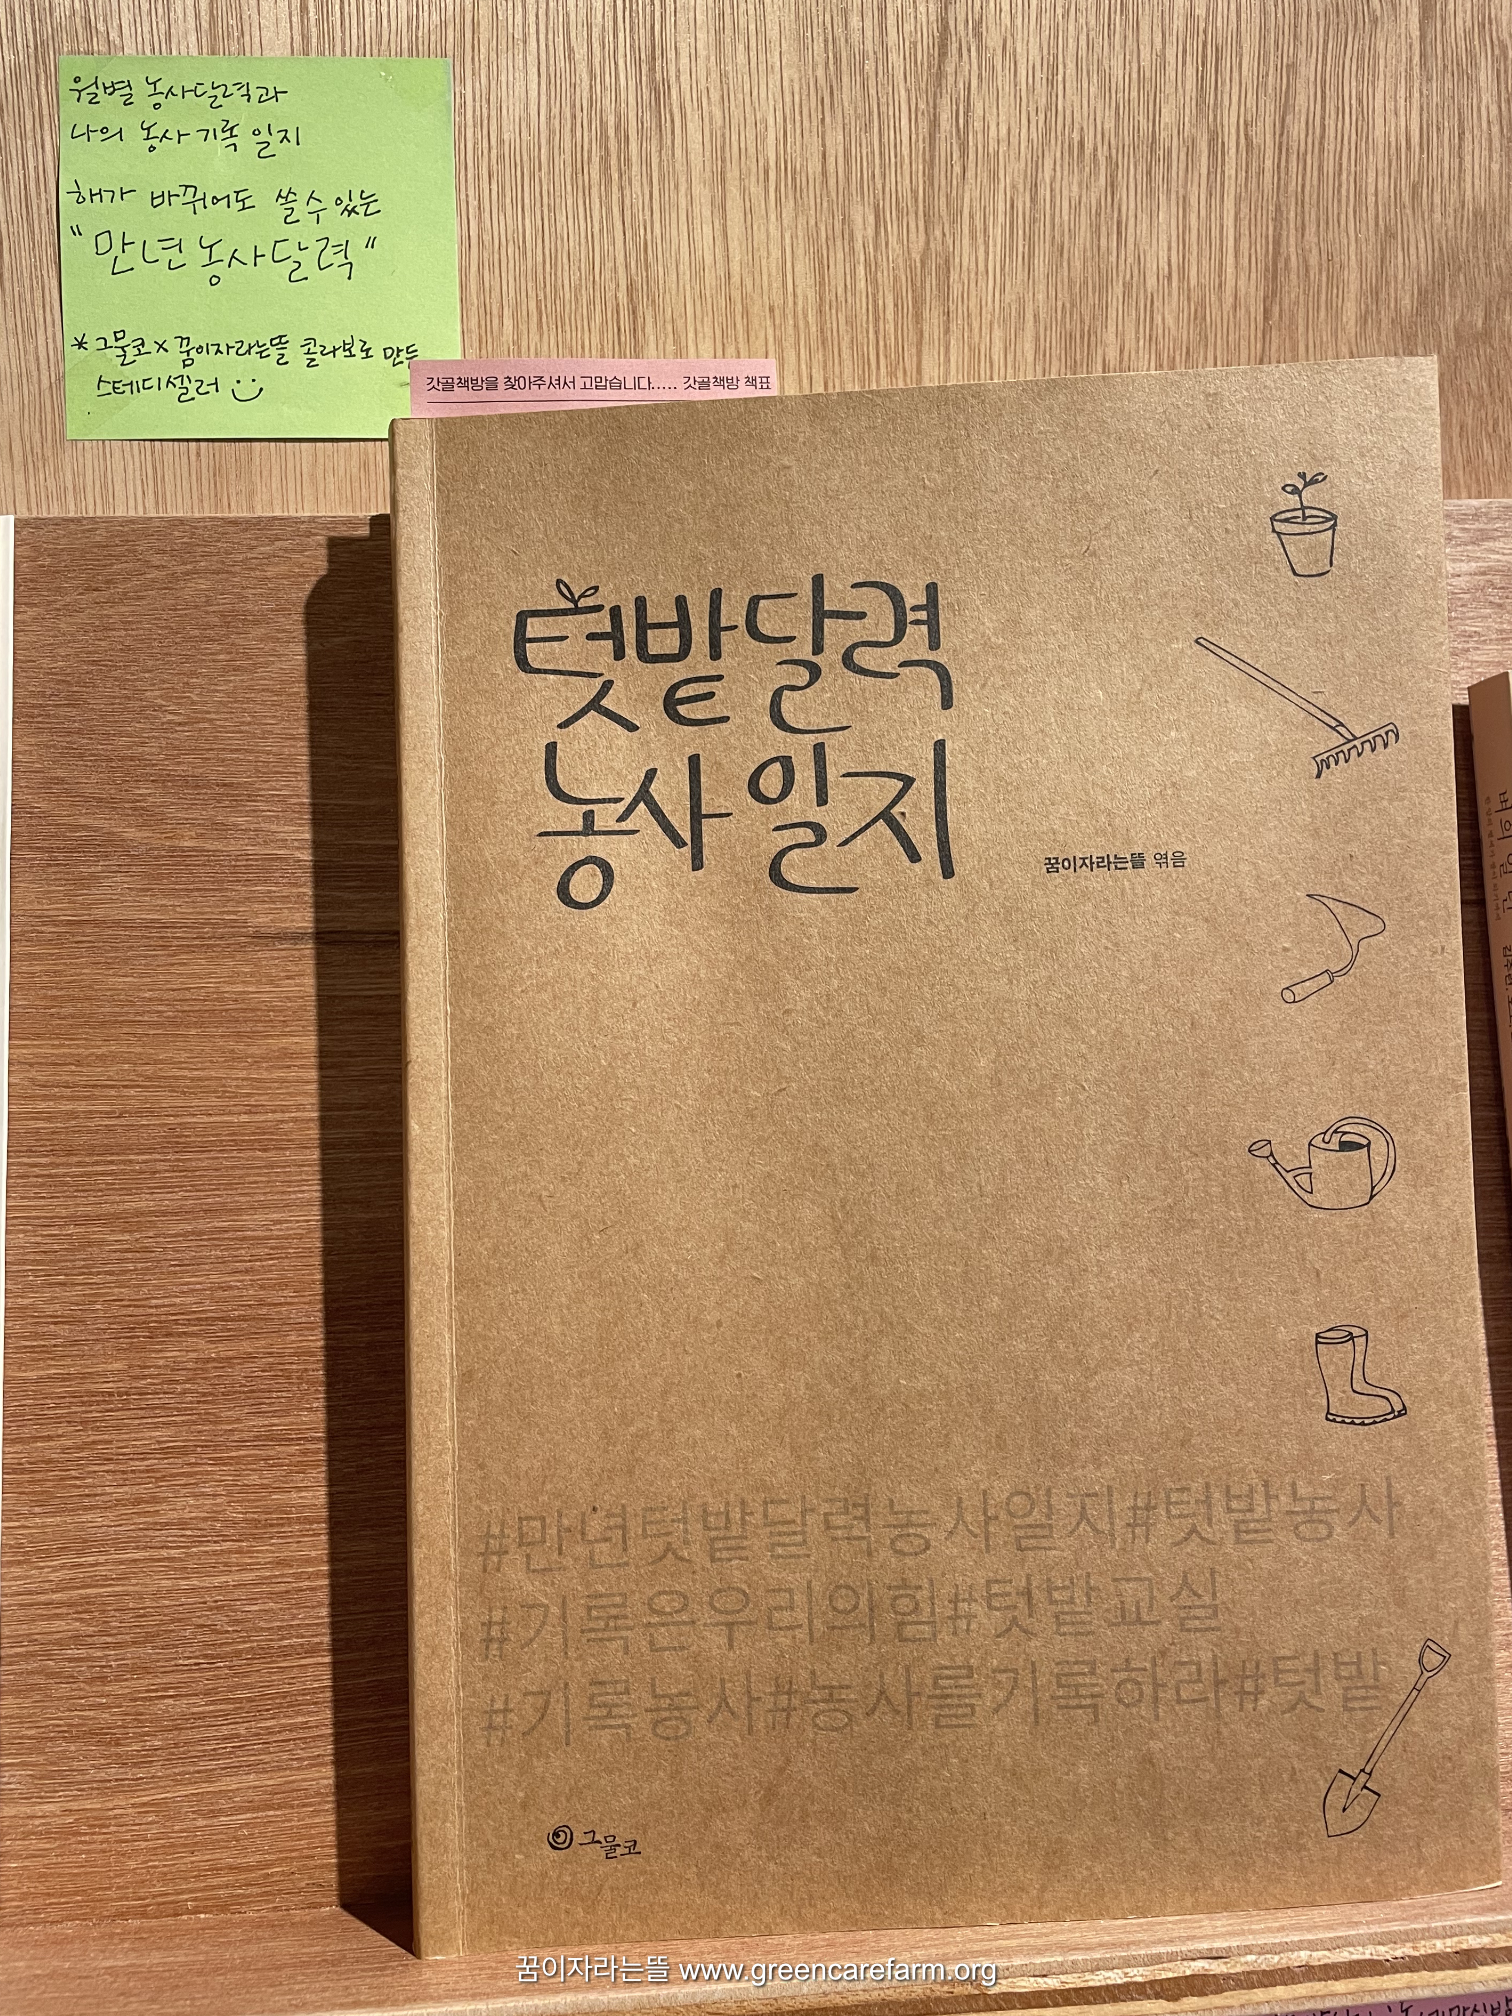 월별 농사달력과
나의 농사 기록 일지
해가 바뀌어도 쓸 수 있는
"만년 농사달력"
* 그물코 X 꿈이자라는뜰 콜라보로 만든
스테디셀러
갓골책방을 찾아주셔서 고맙습니다..... 갓골책방 책표
텃밭달력
농사일지
꿈이자라는뜰 엮음
#만년텃밭달력농사일지#텃밭농사
#기록은우리의힘#텃밭교실
#기록농사#농사를기록하라#텃밭
그물코
꿈이자라는뜰 www.greencarefarm.org